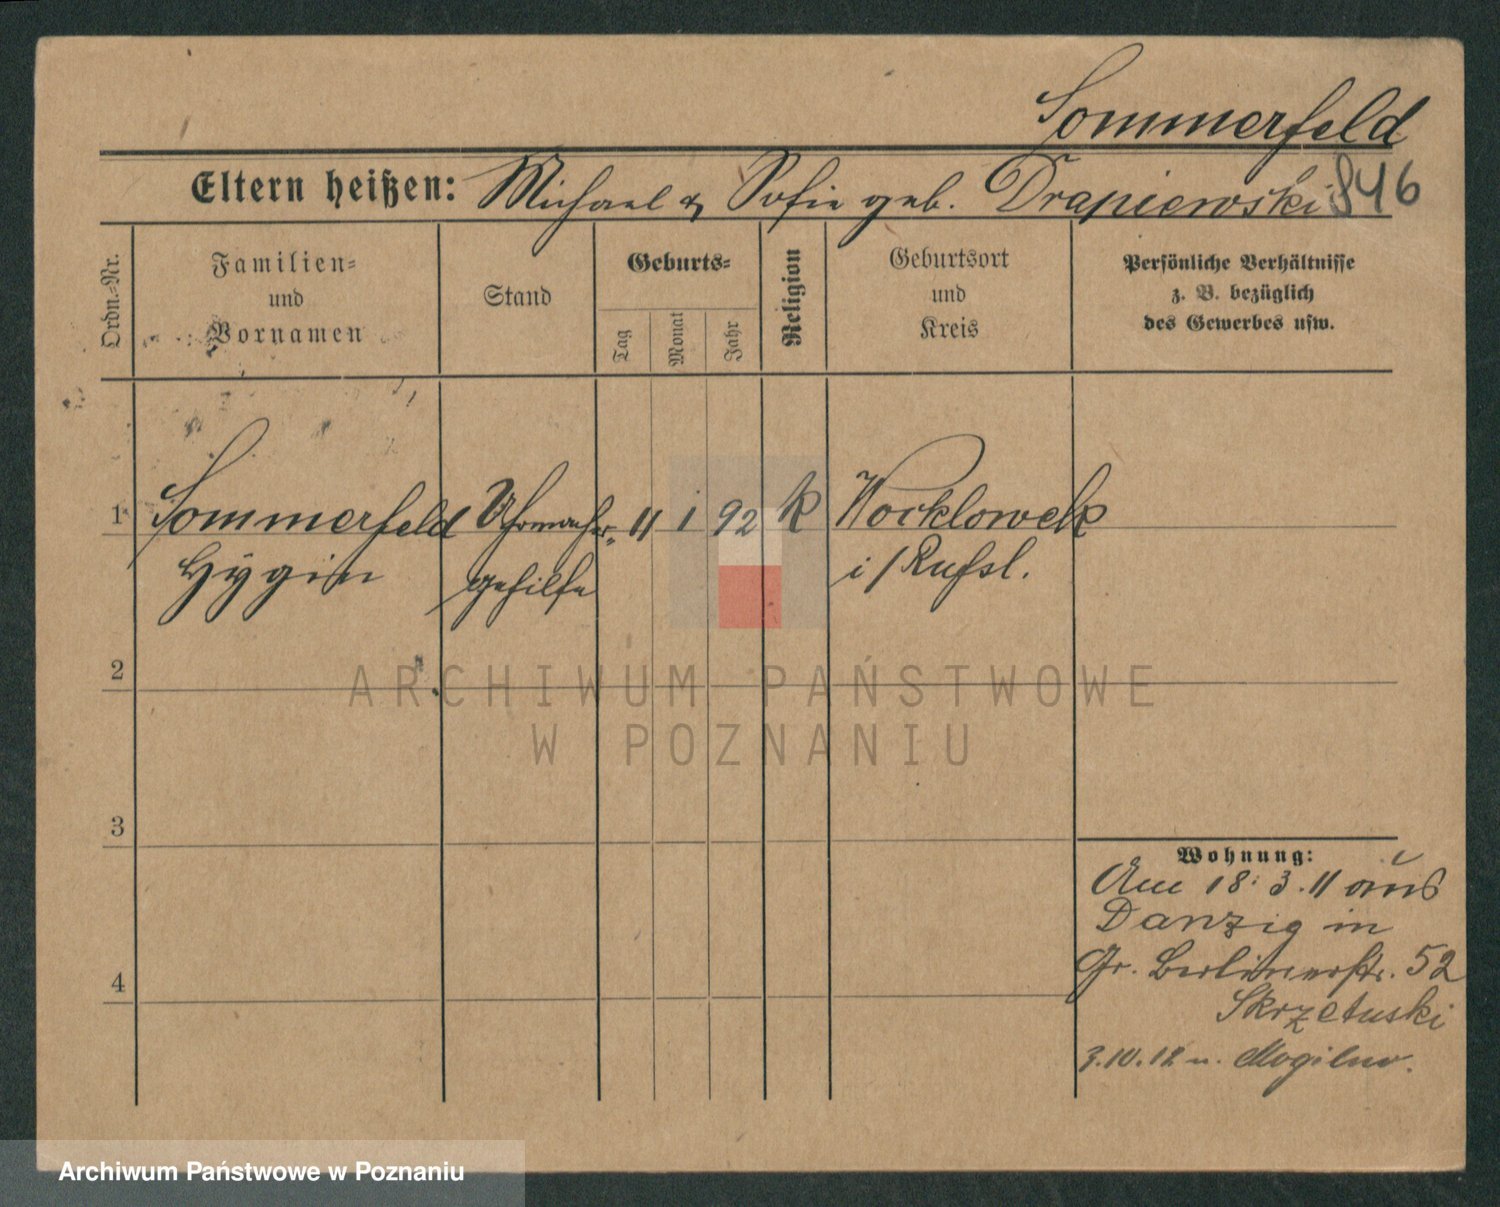 Sommerfeld
Eltern heißen: Michael & Sofie geb. Drapiewski 846
Ordn.-Nr.
Familien-
und
Vornamen
Stand
Geburts-
Tag
Monat
Jahr
Religion
Geburtsort
und
Kreis
Persönliche Verhältnisse
z. B. bezüglich
des Gewerbes usw.
1 Sommerfeld Uhrmacher- 11 1 92 k Wocklowek
Hygin gehilfe i/Rußl.
2
ARCHIWUM PAŃSTWOWE
W POZNANIU
3
Wohnung:
Am 18.3.11 aus
Danzig in
4 Gr. Berlinerstr. 52
Skrzetuski
3.10.12 n. Mogilno.
Archiwum Państwowe w Poznaniu